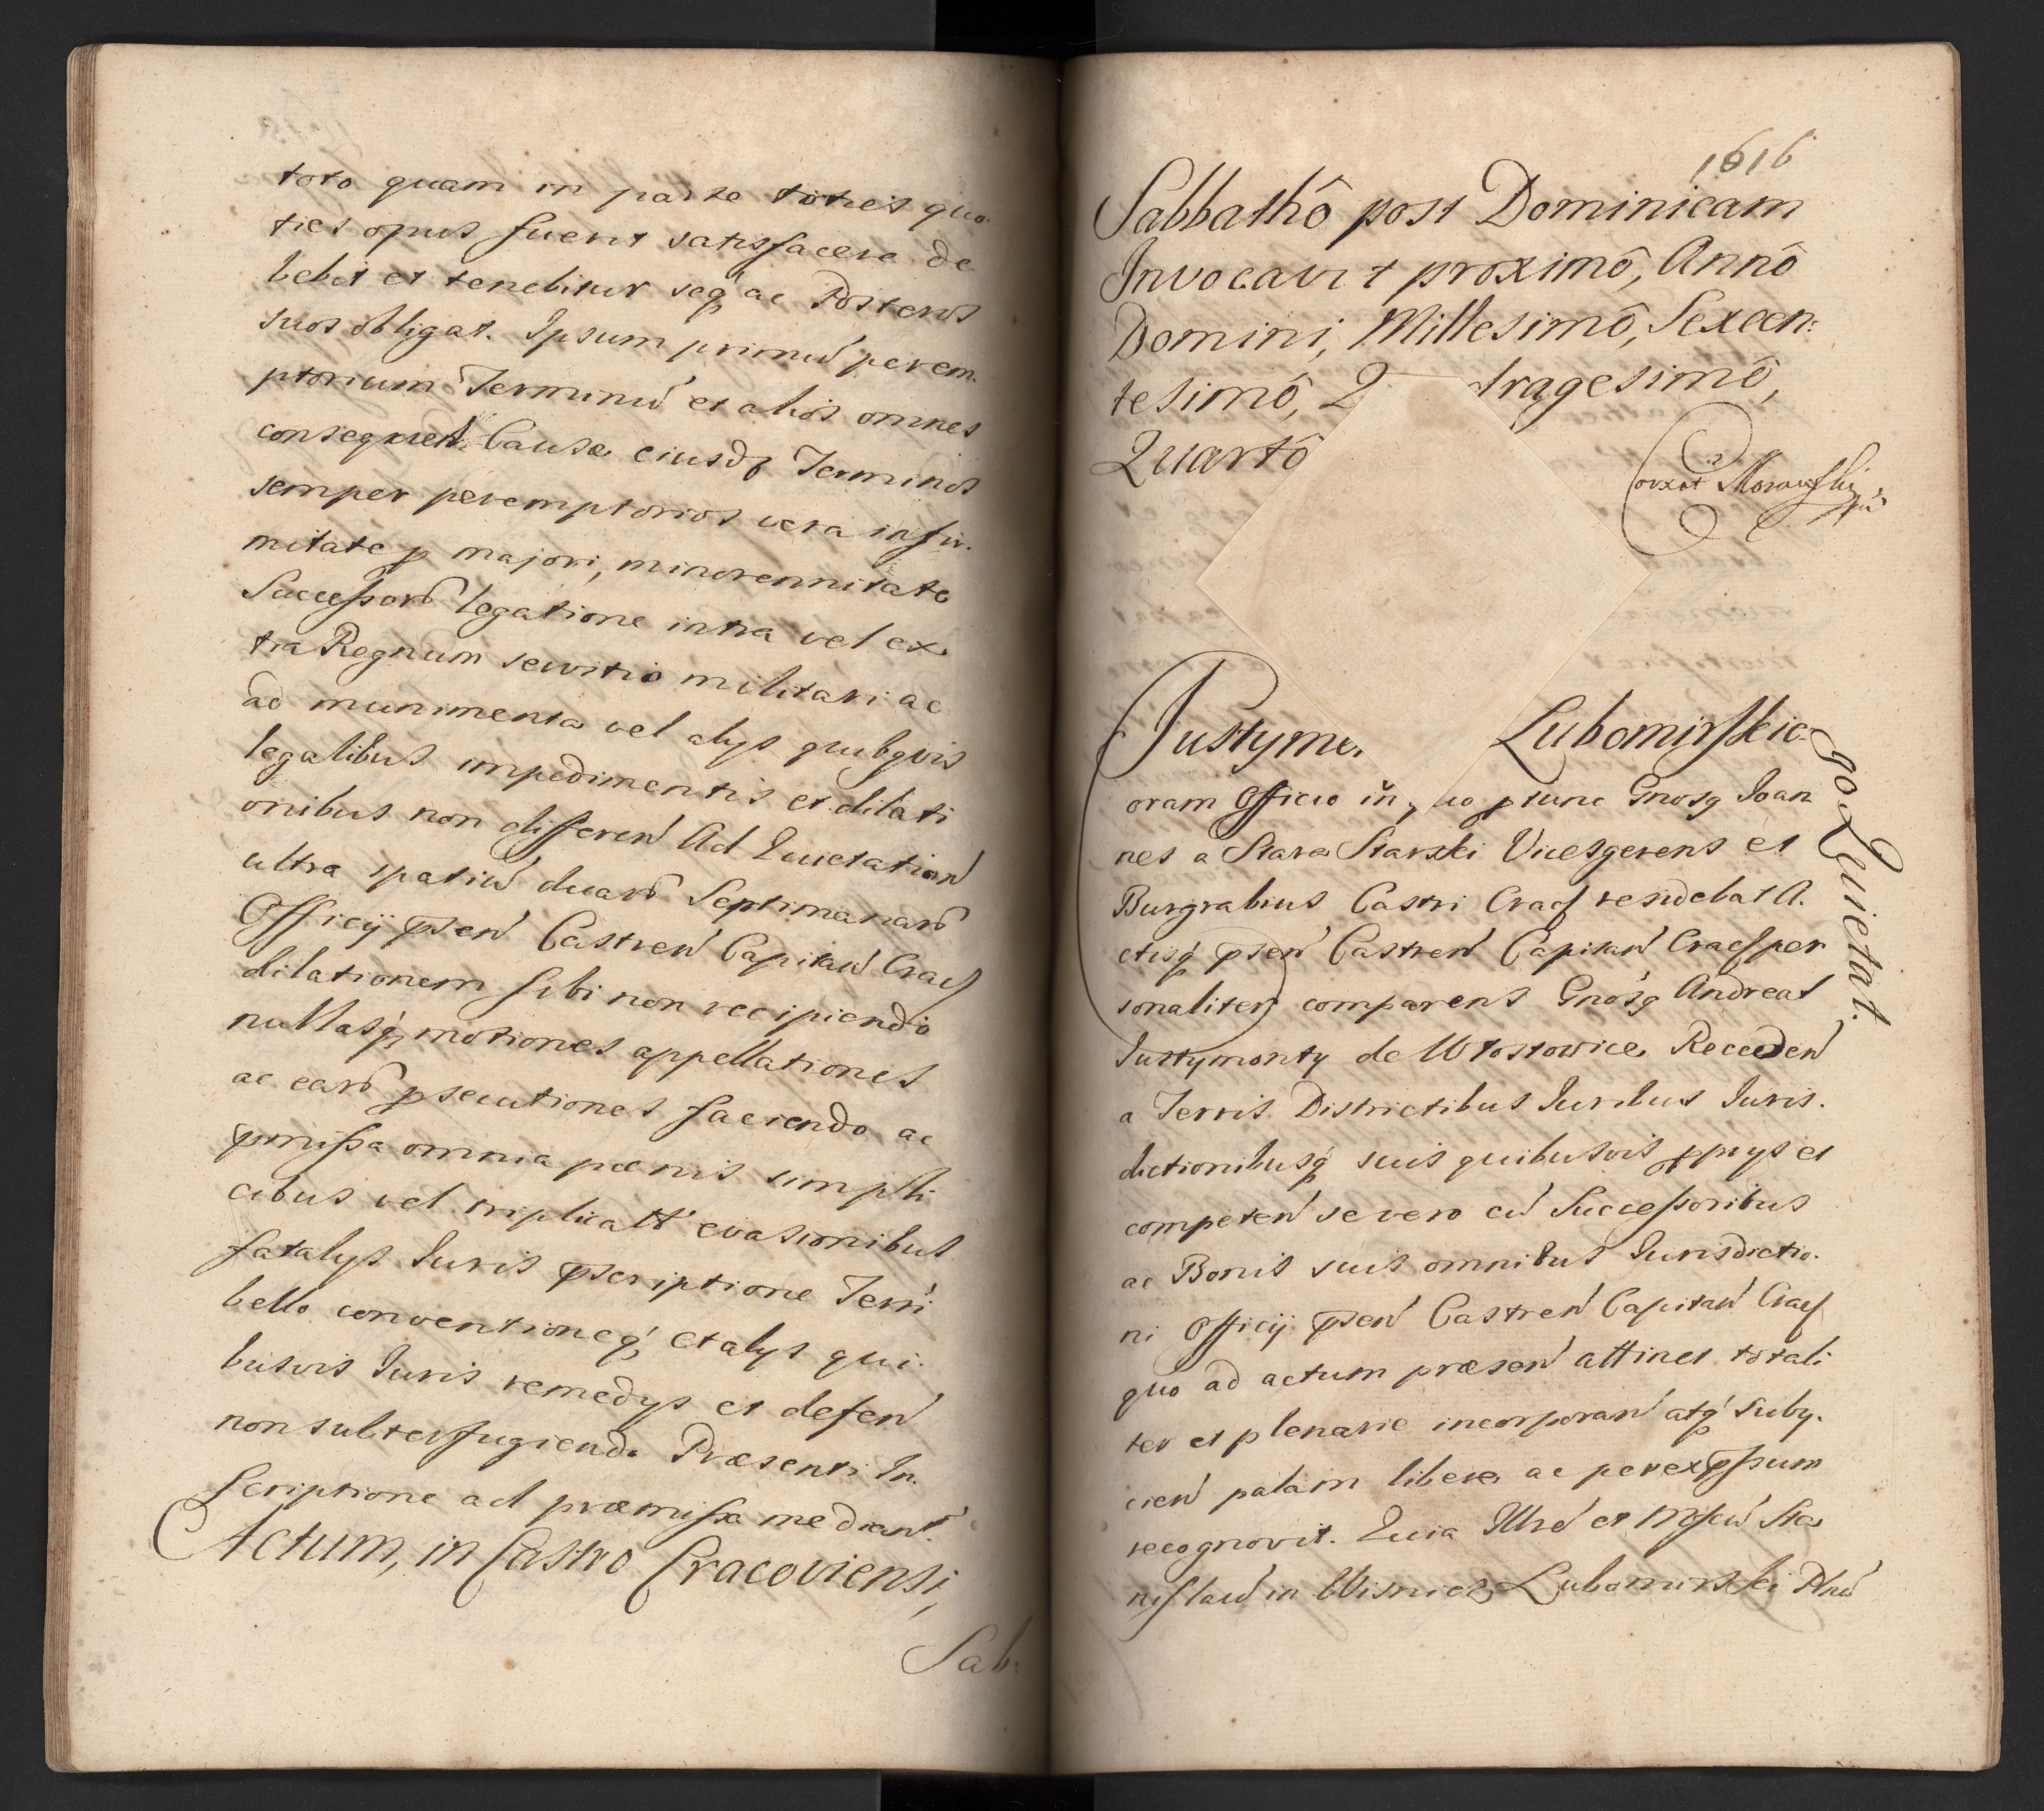 toto quam in parte toties quo
ties opus fuerit satisfacere de
bebit et tenebitur seq ac Posteros
suos obligat. Ipsum primu᷉ perem
ptorium Terminu᷉ et alios omnes
consequen᷉ Causæ eiusdȝ Terminos
semper peremptorios vera infir.
mitate p majori, minorennitate
Successoru᷉ legatione intra vel ex
tra Regnum servitio militari ac
ad munimenta vel alys quibqvis
legalibus impedimentis et dilati
onibus non differen᷉ Ad Quietation᷉
ultra spatiu᷉ duaru᷉ Septimanaru᷉
Officij psen᷉ Castren᷉ Capitan᷉ Crac
dilationem sibi non recipiendo
nullasq́ motiones appellationes
ac earu᷉ psecutiones faciendo ac
pmissa omnia pænis simpli
cibus vel triplicatt evasionibus
fatalys Iuris pscriptione Terri
bello conventioneq́ et alys qui.
busvis Iuris remedys et defen᷉
non subterfugiendo Præsenti In.
scriptione ad præmissa mediant.
Actum, in Castro Cracoviensi,
Sab.
1616
Sabbathô post Dominicam
Invocavit proximô, Annô
Domini, Millesimô, Sexcen:
tesimô, Q dragesimô,
Quartô
Corxit Morawski
mp
Justymo. Lubomirskie
go Quietat.
oram Officio in, uo ptunc Gnosq Ioan
nes a Stara Starski Vicesgerens et
Burgrabius Castri Crac residebat A.
ctisq́ psen᷉ Castren᷉ Capitan᷉ Crac per
sonaliter comparens Gnosq Andreas
Iustymonty de Wtostowice Receden᷉
a Terris Districtibus Iuribus Iuris.
dictionibusq́ suis quibusvis pprys et
competen᷉ se vero cu᷉ Successoribus
ac Bonis suis omnibus Iurisdictio.
ni Officij psen᷉ Castren᷉ Capitan᷉ Crac
quo ad actum præsen᷉ attinet totali
ter et plenarie incorporan᷉ atq́ suby.
cien᷉ palam libere ac per expssum
recognovit. Quia Illre᷉ et Mgfcu᷉ Sta
nislau᷉ in Wisnicz Lubomirski Plnu᷉